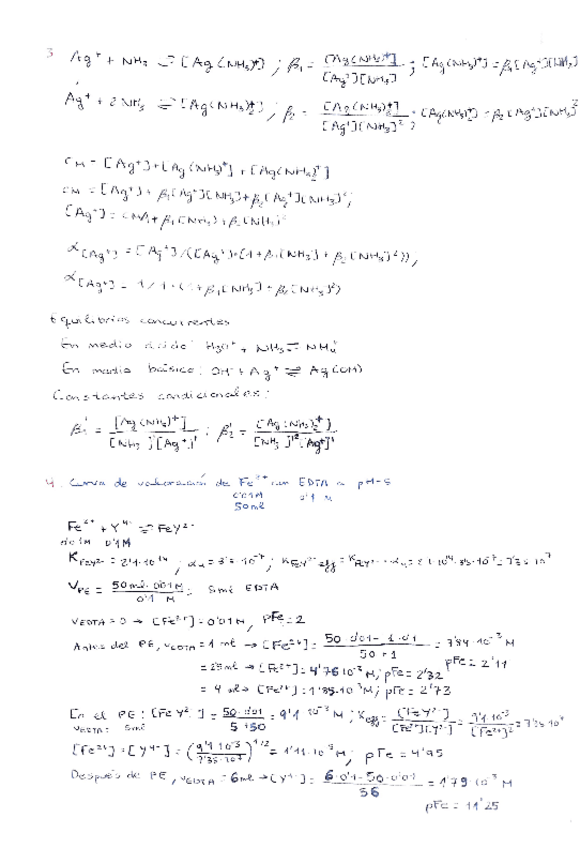 3 Ag⁺ + NH₃ ⇌ [Ag(NH₃)⁺] ; β₁ = [Ag(NH₃)⁺] / [Ag⁺][NH₃] ; [Ag(NH₃)⁺] = β₁[Ag⁺][NH₃]
Ag⁺ + 2NH₃ ⇌ [Ag(NH₃)₂⁺] ; β₂ = [Ag(NH₃)₂⁺] / [Ag⁺][NH₃]² ; [Ag(NH₃)₂⁺] = β₂[Ag⁺][NH₃]²
CM = [Ag⁺] + [Ag(NH₃)⁺] + [Ag(NH₃)₂⁺]
CM = [Ag⁺] + β₁[Ag⁺][NH₃] + β₂[Ag⁺][NH₃]² ;
[Ag⁺] = CM/1 + β₁[NH₃] + β₂[NH₃]²
α[Ag⁺] = [Ag⁺]/([Ag⁺]·(1 + β₁[NH₃] + β₂[NH₃]²)) ,
α[Ag⁺] = 1/1·(1 + β₁[NH₃] + β₂[NH₃]²)
Equilibrios concurrentes
En medio ácido: H₃O⁺ + NH₃ ⇌ NH₄⁺
En medio básico: OH⁻ + Ag⁺ ⇌ Ag(OH)
Constantes condicionales:
β₁' = [Ag(NH₃)⁺] / [NH₃]'[Ag⁺]' ; β₂' = [Ag(NH₃)₂⁺] / [NH₃]'²[Ag⁺]'
4. Curva de valoración de Fe²⁺ con EDTA a pH=5
0'01M 0'1 M
50ml
Fe²⁺ + Y⁴⁻ ⇌ FeY²⁻
0'01M 0'1M
KFeY²⁻ = 2'1·10¹⁴ ; α₄ = 3'5·10⁻⁷ ; KFeY²⁻eff = KFeY²⁻·α₄ = 2'1·10¹⁴·3'5·10⁻⁷ = 7'35·10⁷
VPE = 50ml·0'01M / 0'1 M = 5ml EDTA
VEDTA = 0 → [Fe²⁺] = 0'01M, pFe = 2
Antes del PE, VEDTA = 1 ml → [Fe²⁺] = 50·0'01 - 1·0'1 / 50+1 = 7'84·10⁻³ M
pFe = 2'11
= 2'5ml → [Fe²⁺] = 4'76·10⁻³ M; pFe = 2'32
= 4 ml → [Fe²⁺] = 1'85·10⁻³ M; pFe = 2'73
En el PE: [FeY²⁻] = 50·0'01 / 5+50 = 9'1·10⁻³ M ; Keff = [FeY²⁻] / [Fe²⁺][Y⁴⁻] = 9'1·10⁻³ / [Fe²⁺]² = 7'35·10⁷
VEDTA: 5ml
[Fe²⁺] = [Y⁴⁻] = (9'1·10⁻³ / 7'35·10⁷)^1/2 = 1'11·10⁻⁵ M; pFe = 4'95
Después de PE, VEDTA = 6ml → [Y⁴⁻] = 6·0'1 - 50·0'01 / 56 = 1'79·10⁻³ M
pFe = 11'25